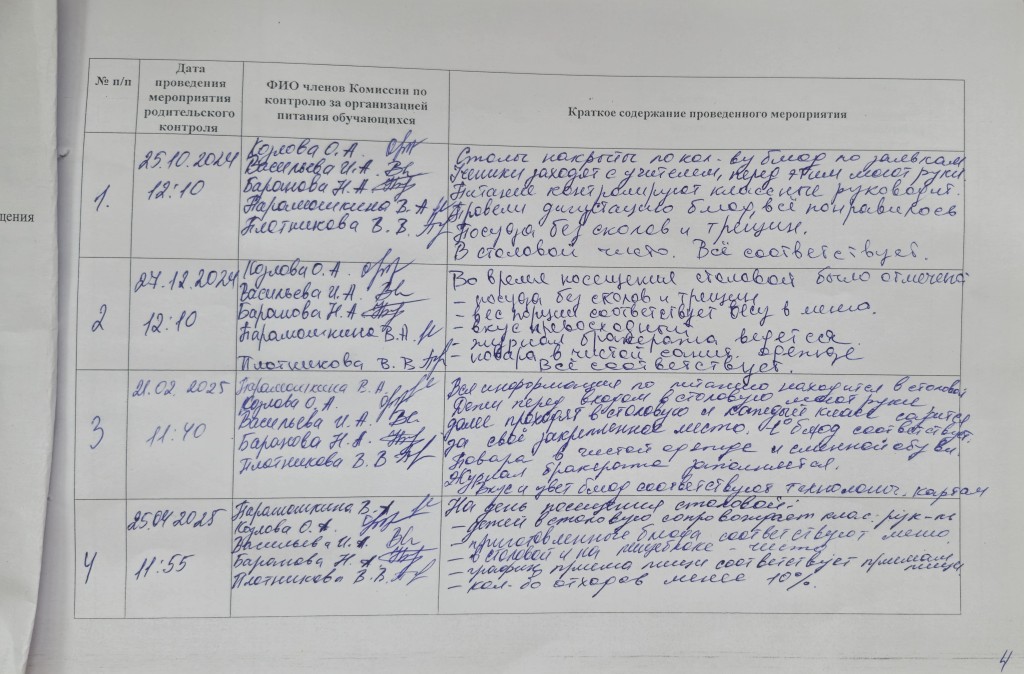 щения
№ п/п
Дата проведения мероприятия родительского контроля
ФИО членов Комиссии по контролю за организацией питания обучающихся
Краткое содержание проведенного мероприятия
1.
25.10.2024
12:10
Козлова О.А.
Васильева И.А.
Баранова Н.А.
Парамошкина В.А.
Плотникова В.В.
Столы накрыты по кол-ву блюд по заявкам.
Ученики заходят с учителем, перед этим моют руки.
Питание контролируют классные руководит.
Провели дигустацию блюд, всё понравилось
Посуда без сколов и трещин.
В столовой чисто. Всё соответствует.
2
27.12.2024
12:10
Козлова О.А.
Васильева И.А.
Баранова Н.А.
Парамошкина В.А.
Плотникова В.В
Во время посещения столовой было отмечено
- посуда без сколов и трещин
- вес порций соответствует весу в меню.
- вкус превосходный
- журнал бракеража ведется.
- повара в чистой санит. одежде
Всё соответствует.
3
21.02.2025
11:40
Парамошкина В.А.
Козлова О.А.
Васильева И.А.
Баранова Н.А.
Плотникова В.В
Вся информация по питанию находится в столовой
Дети перед входом в столовую моют руки,
далее проходят в столовую и каждый класс садится
за своё закрепленное место. t° блюд соответствует.
Повара в чистой одежде и сменной обуви.
Журнал бракеража заполняется.
Вкус и цвет блюд соответствуют технологич. картам
4
25.04.2025
11:55
Парамошкина В.А.
Козлова О.А.
Васильева И.А.
Баранова Н.А.
Плотникова В.В.
На день посещения столовой:
- детей в столовую сопровождает клас. рук-ль
- приготовленные блюда соответствуют меню.
- в столовой и на пищеблоке - чисто
- график приема пищи соответствует приемам пищи
- кол-во отходов менее 10%.
4